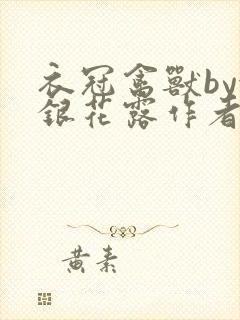 衣冠禽獸by
銀花露作者
黄素